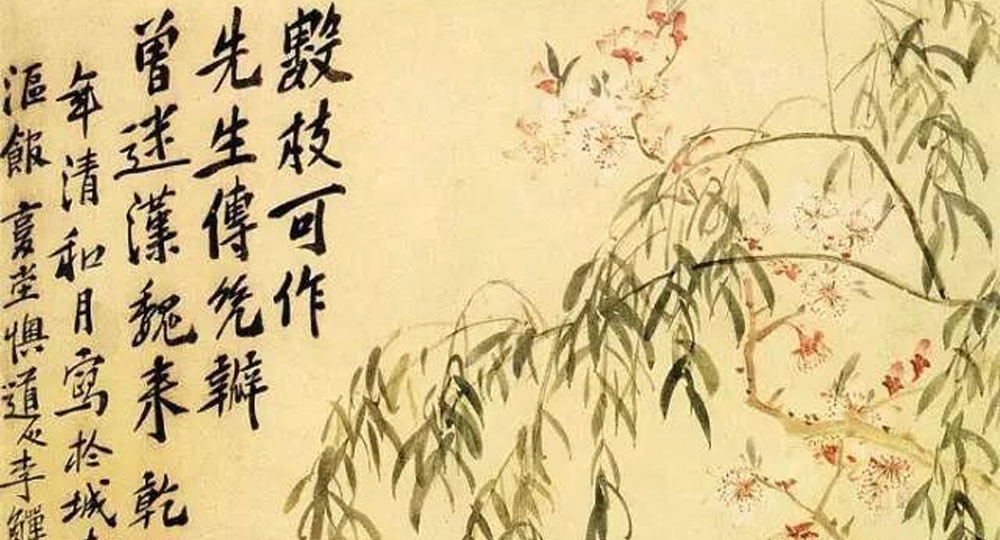 數枝可作
先生傳辨
曾迷漢魏來 乾
年清和月寫於城
漚館 复堂懊道人李鱓